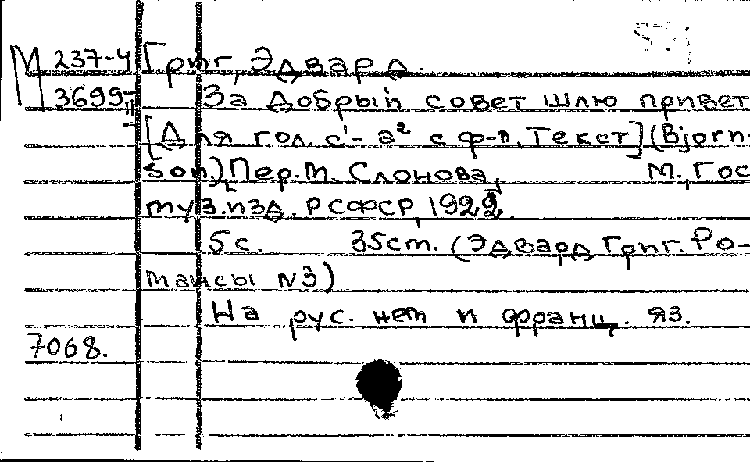 М 237-4 Григ, Эдвард.
3699 За добрый совет шлю привет
[Для гол. c¹- a² с ф-п. Текст] (Bjørn-
son), Пер. М. Слонова, М., Гос
муз. изд. РСФСР, 1922.
5с. 35cm. (Эдвард Григ. Ро-
мансы N3)
На рус. нем и франц. яз.
7068.